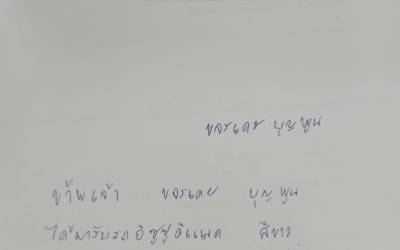 ขจรเดช บุญพูน
ข้าพเจ้า ขจรเดช บุญพูน
ได้มารับรถอีซูซุดีแมค สีขาว